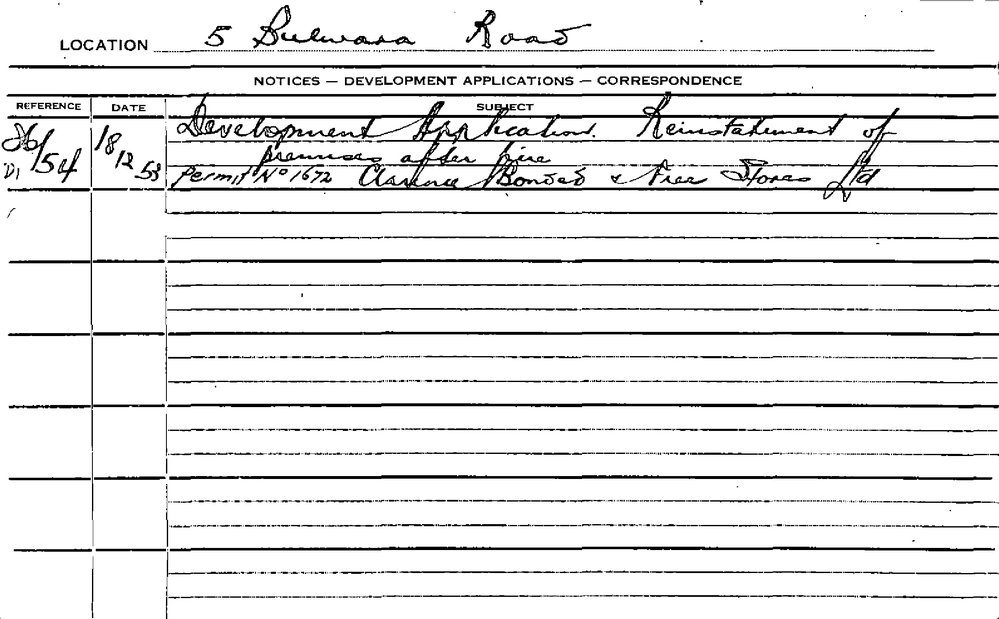 LOCATION 5 Bulwara Road
NOTICES — DEVELOPMENT APPLICATIONS — CORRESPONDENCE
REFERENCE DATE SUBJECT
/54 18/12/53 Development Application. Reinstatement of
premises after fire
Permit No 1672 Clarence Bonded & Free Stores Ltd